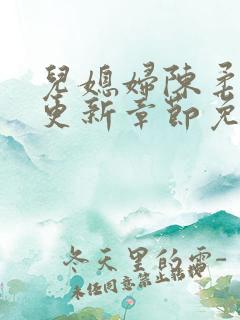 兒媳婦陳柔
更新章節免
冬天里的雷-
未经同意禁止转载